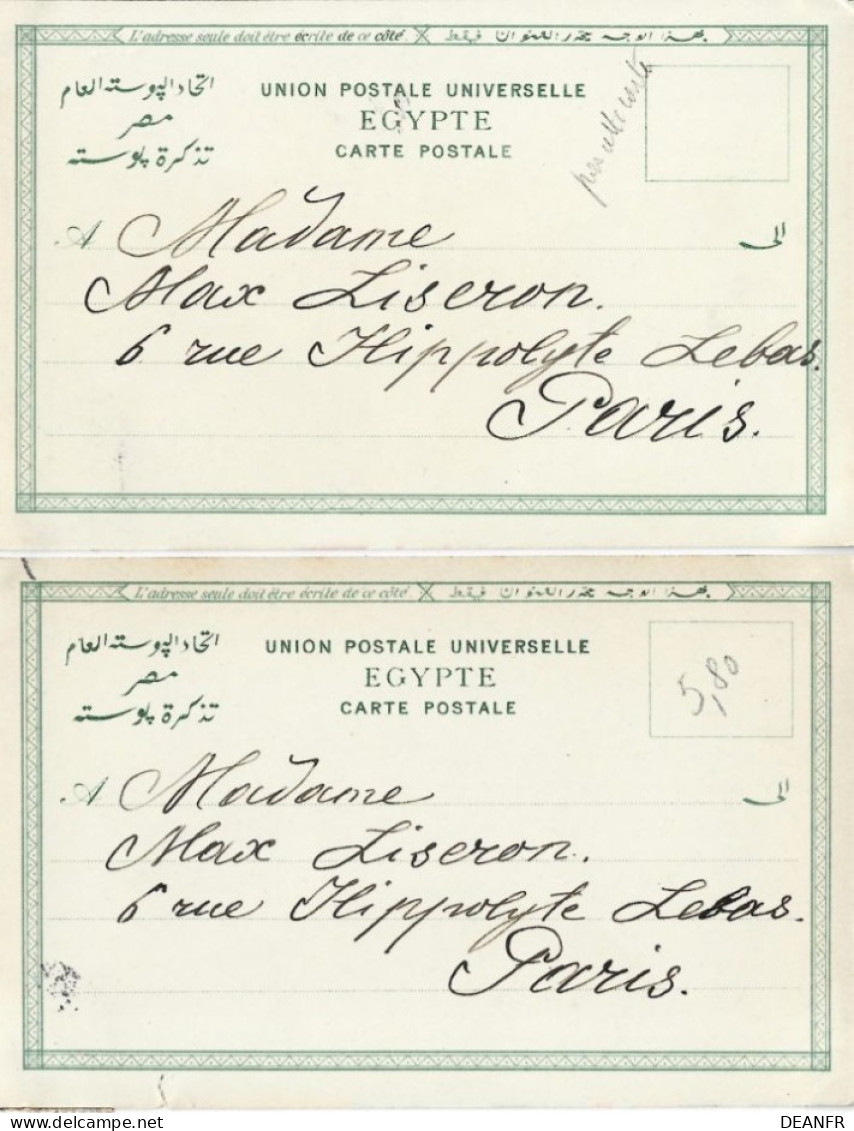 L'adresse seule doit être écrite de ce côté. بهذا الوجه يحرر العنوان فقط
اتحاد البوسته العام
UNION POSTALE UNIVERSELLE
مصر
EGYPTE
تذكرة بوسته
CARTE POSTALE
A Madame الى
Max Liseron.
6 rue Hippolyte Lebas.
Paris.
L'adresse seule doit être écrite de ce côté. بهذا الوجه يحرر العنوان فقط
اتحاد البوسته العام
UNION POSTALE UNIVERSELLE
5,80
مصر
EGYPTE
تذكرة بوسته
CARTE POSTALE
A Madame الى
Max Liseron.
6 rue Hippolyte Lebas.
Paris.
DEANFR